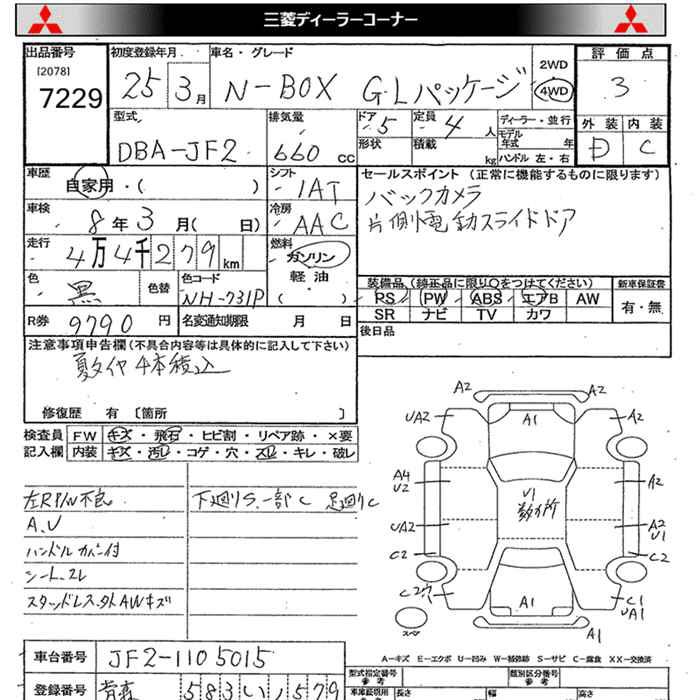 三菱ディーラーコーナー
出品番号 初度登録年月 車名・グレード 2WD 評価点
[2078]
7229 25 3月 N-BOX G・Lパッケージ 4WD 3
型式 排気量 ドア 定員 ディーラー・並行 外装 内装
DBA-JF2 660 cc 5 4人 モデル年式 年 D C
形状 積載 kg ハンドル 左・右
車歴 シフト セールスポイント (正常に機能するものに限ります)
自家用・( ) IAT バックカメラ
車検 冷房 片側電動スライドドア
8年3月( 日) AAC
走行 燃料
4万4千279km ガソリン
軽油
( )
色 色替 色コード 装備品 (純正品に限り○をつけてください) 新車保証書
黒 NH-731P PS PW ABS エアB AW 有・無
SR ナビ TV カワ
R券 9790円 名変通知期限 月 日 後日品
注意事項申告欄 (不具合内容等は具体的に記入して下さい)
夏タイヤ4本積込
修復歴 有 〔箇所 〕
検査員 FW キズ・飛石・ヒビ割・リペア跡・×要
記入欄 内装 キズ・汚レ・コゲ・穴・スレ・キレ・破レ
左RP/W不良 下廻りS.一部C 足廻りC
A.U
ハンドルカバー付
シートスレ
スタッドレス.外AWキズ
A2 A2
UA2 A1 A2
A4 A2
U2 U1
UA2 A2
U1
C2 C2
C2 C1
A1 UA1
スペア A1
A-キズ E-エクボ U-凹み W-補修跡 S-サビ C-腐食 XX-交換済
車台番号 JF2-1105015 型式指定番号 類別区分番号
参考 参考
登録番号 青森 583 い 1579 車庫証明用 長さ 幅 高さ
参考